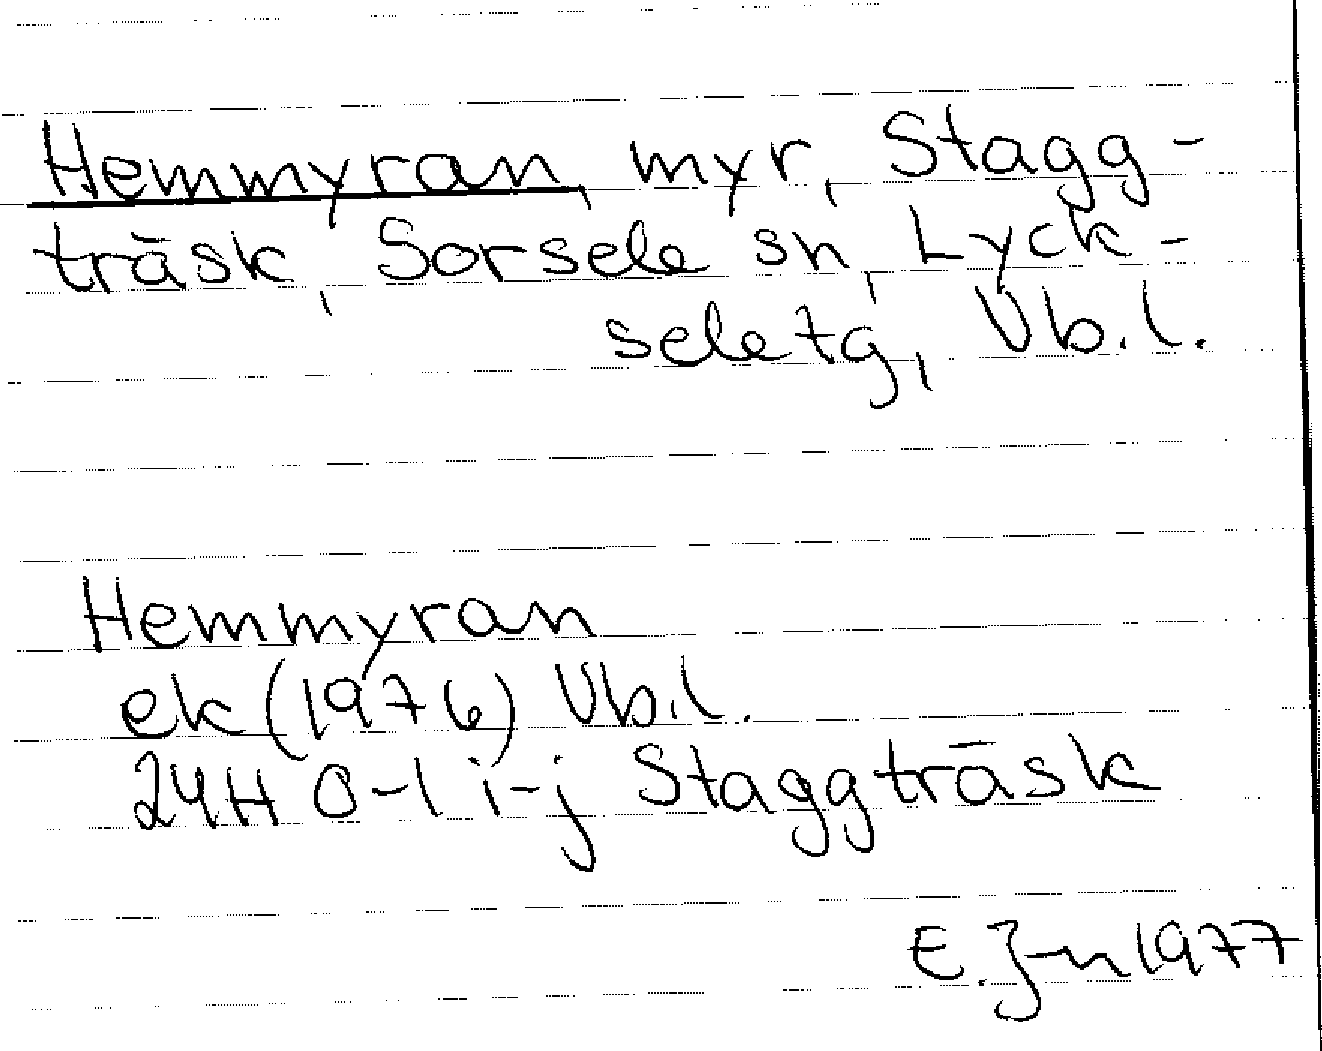 Hemmyran, myr, Stagg-
träsk, Sorsele sn, Lyck-
seletg, Vb.l.
Hemmyran
ek (1976) Vb.l.
24H 0-1 i-j Staggträsk
E. J-n 1977